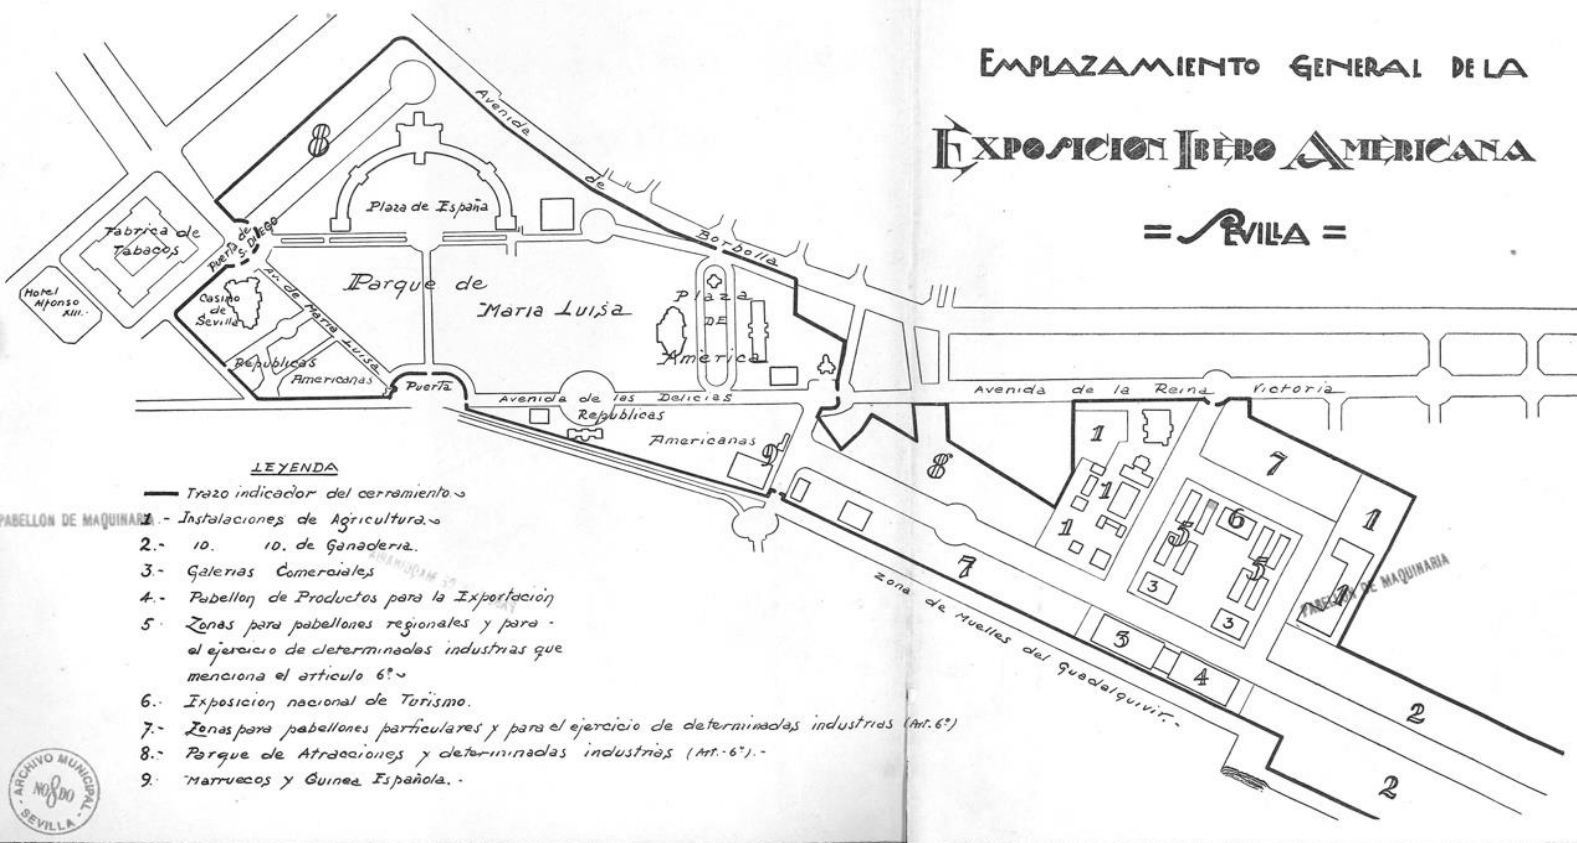 EMPLAZAMIENTO GENERAL DE LA
EXPOSICION IBERO AMERICANA
= SEVILLA =
Avenida de Borbolla
8
Plaza de España
Fabrica de
Tabacos
Puerta de
S. DIEGO
Hotel
Alfonso
XIII.
Casino
de
Sevilla
Av. de Maria Luisa
Parque de
Maria Luisa
Plaza
DE
America
Republicas
Americanas
Puerta
Avenida de las Delicias
Republicas
Americanas
9
Avenida de la Reina Victoria
8
1
1
1
7
1
1
5
6
5
3
3
7
3
4
2
2
Zona de Muelles del Guadalquivir.-
LEYENDA
Trazo indicador del cerramiento.
1.- Instalaciones de Agricultura.
2.- ID. ID. de Ganaderia.
3.- Galerias Comerciales
4.- Pabellon de Productos para la Exportación
5- Zonas para pabellones regionales y para -
el ejercicio de determinadas industrias que
menciona el articulo 6º
6.- Exposicion nacional de Turismo.
7.- Zonas para pabellones particulares y para el ejercicio de determinadas industrias (Art. 6º)
8.- Parque de Atracciones y determinadas industrias (Art.-6º).-
9.- Marruecos y Guinea Española.-
PABELLON DE MAQUINARIA
PABELLON DE MAQUINARIA
ARCHIVO MUNICIPAL
NO8DO
SEVILLA